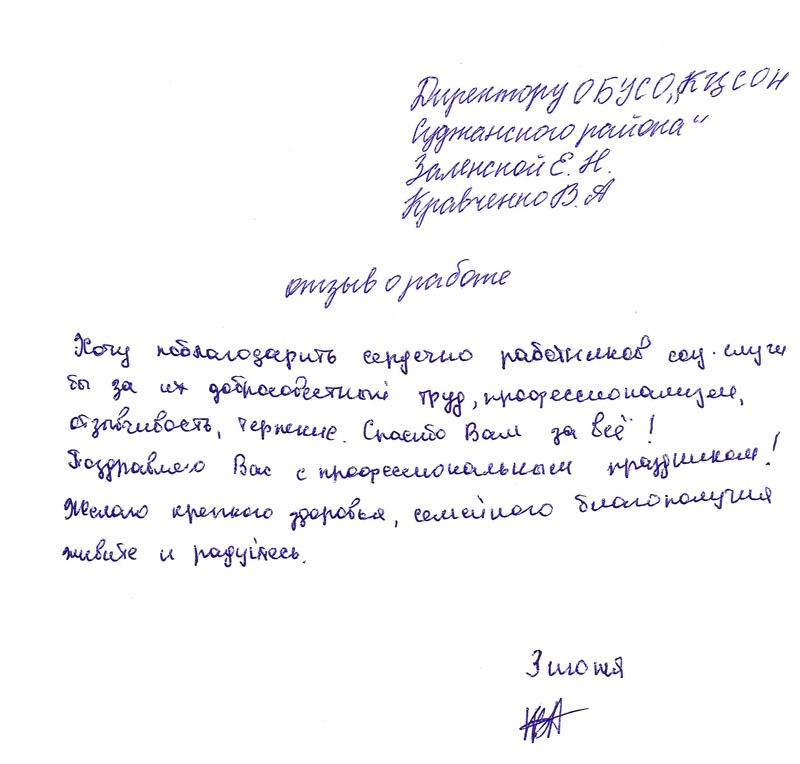 Директору ОБУСО „КЦСОН
Суджанского района“
Заленской Е. Н.
Кравченко В. А
отзыв о работе
Хочу поблагодарить сердечно работников соц. служ
бы за их добросовестный труд, профессионализм,
отзывчивость, терпение. Спасибо Вам за всё!
Поздравляю Вас с профессиональным праздником!
Желаю крепкого здоровья, семейного благополучия
живите и радуйтесь.
3 июня